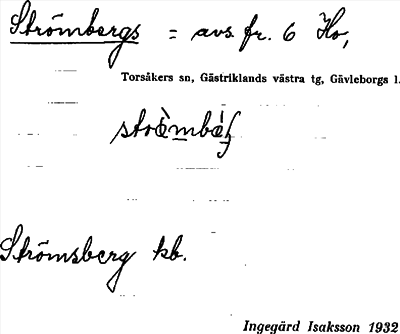 Strömbergs = avs. fr. 6 Ho,
Torsåkers sn, Gästriklands västra tg, Gävleborgs l.
Strömsberg kb.
Ingegärd Isaksson 1932